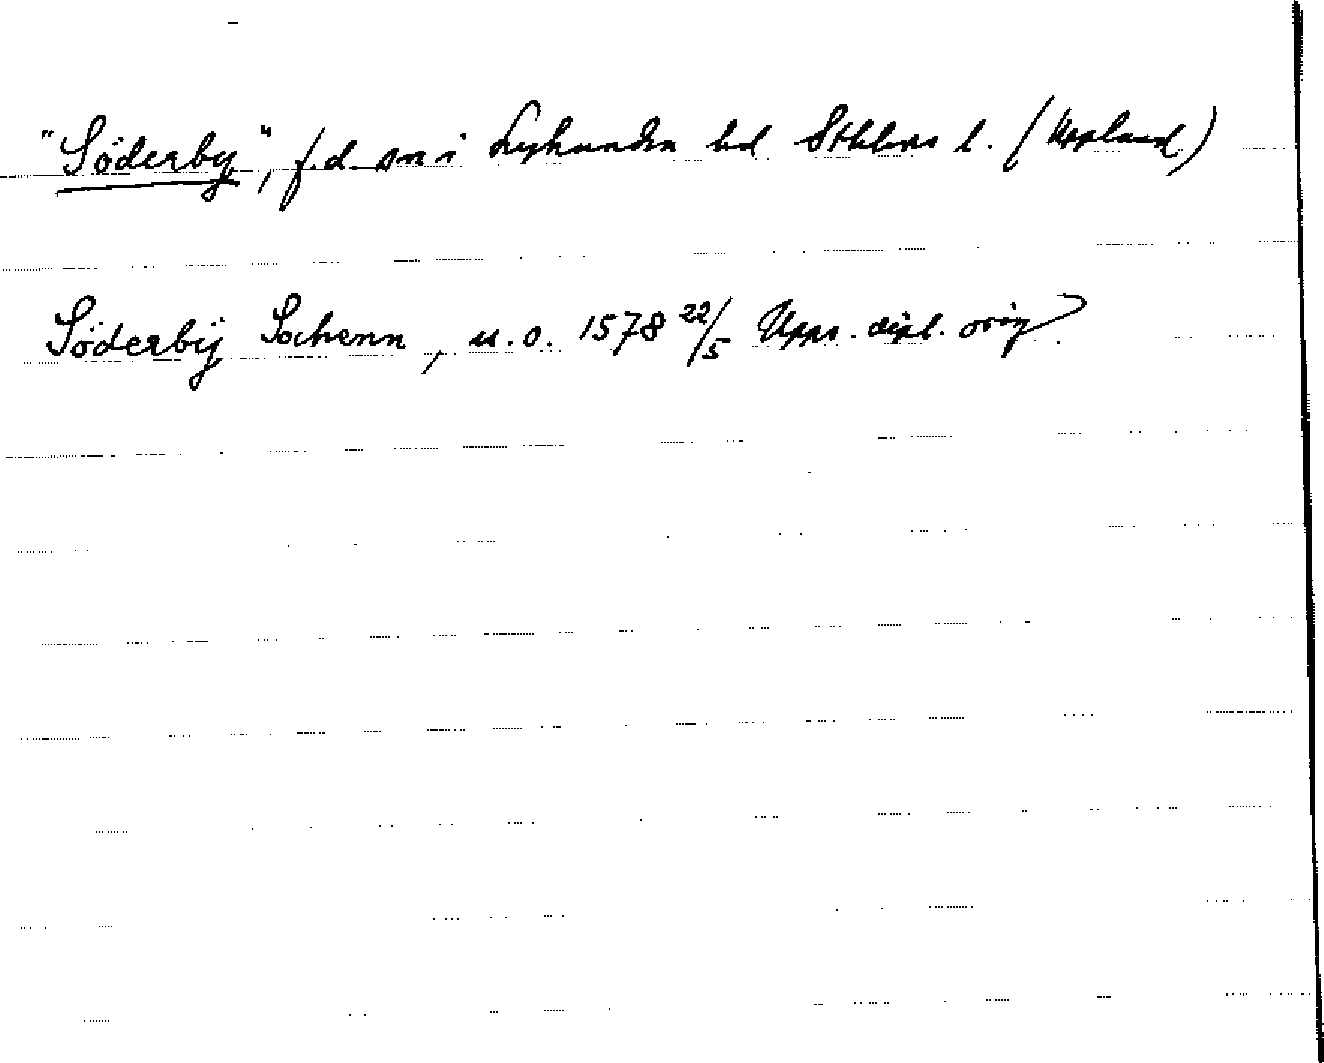 "Söderby", f.d. sn i Lyhundra hd Sthlms l. (Uppland)
Söderbÿ Sochenn, u.o. 1578 22/5 Upps. dipl. orig